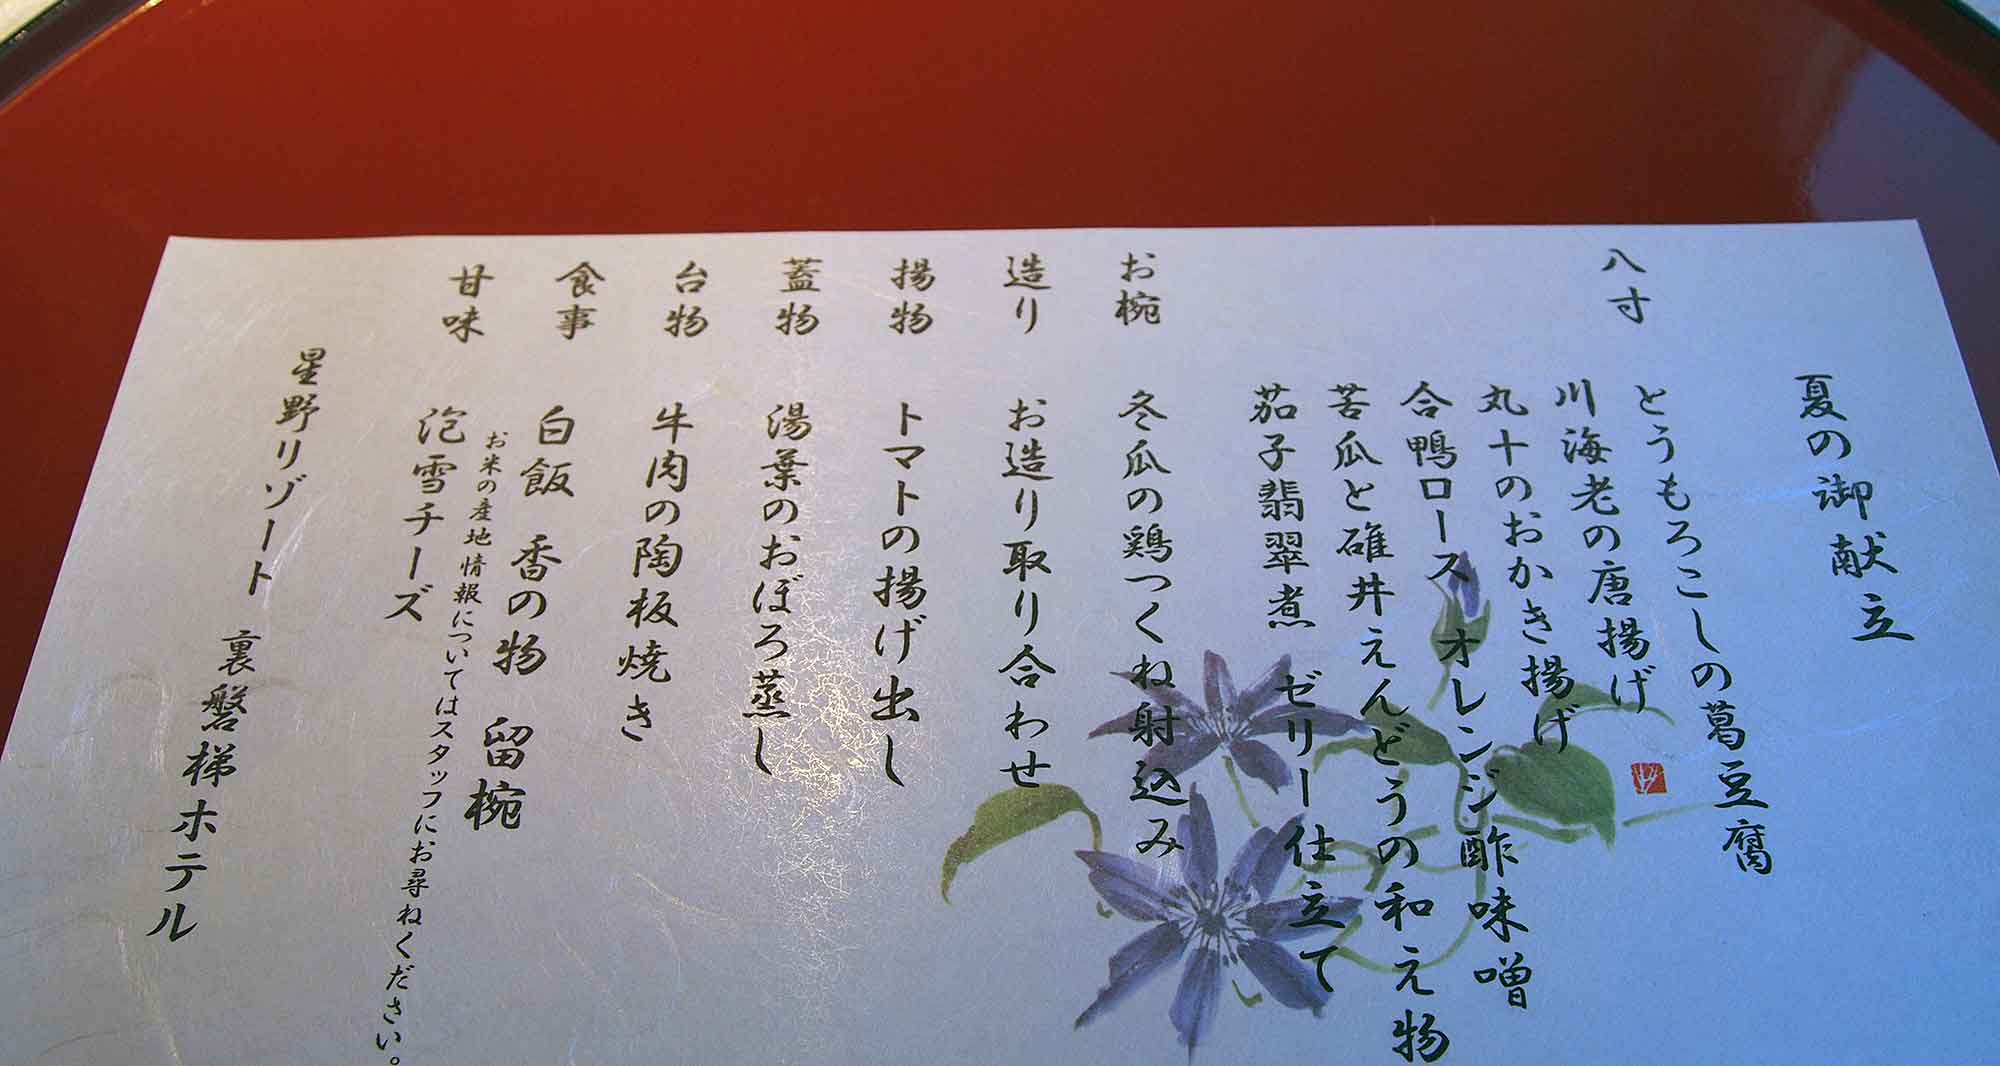 夏の御献立
八寸 とうもろこしの葛豆腐
川海老の唐揚げ
丸十のおかき揚げ
合鴨ロース オレンジ酢味噌
苦瓜と碓井えんどうの和え物
茄子翡翠煮 ゼリー仕立て
お椀 冬瓜の鶏つくね射込み
造り お造り取り合わせ
揚物 トマトの揚げ出し
蓋物 湯葉のおぼろ蒸し
台物 牛肉の陶板焼き
食事 白飯 香の物 留椀
お米の産地情報についてはスタッフにお尋ねください。
甘味 泡雪チーズ
星野リゾート 裏磐梯ホテル